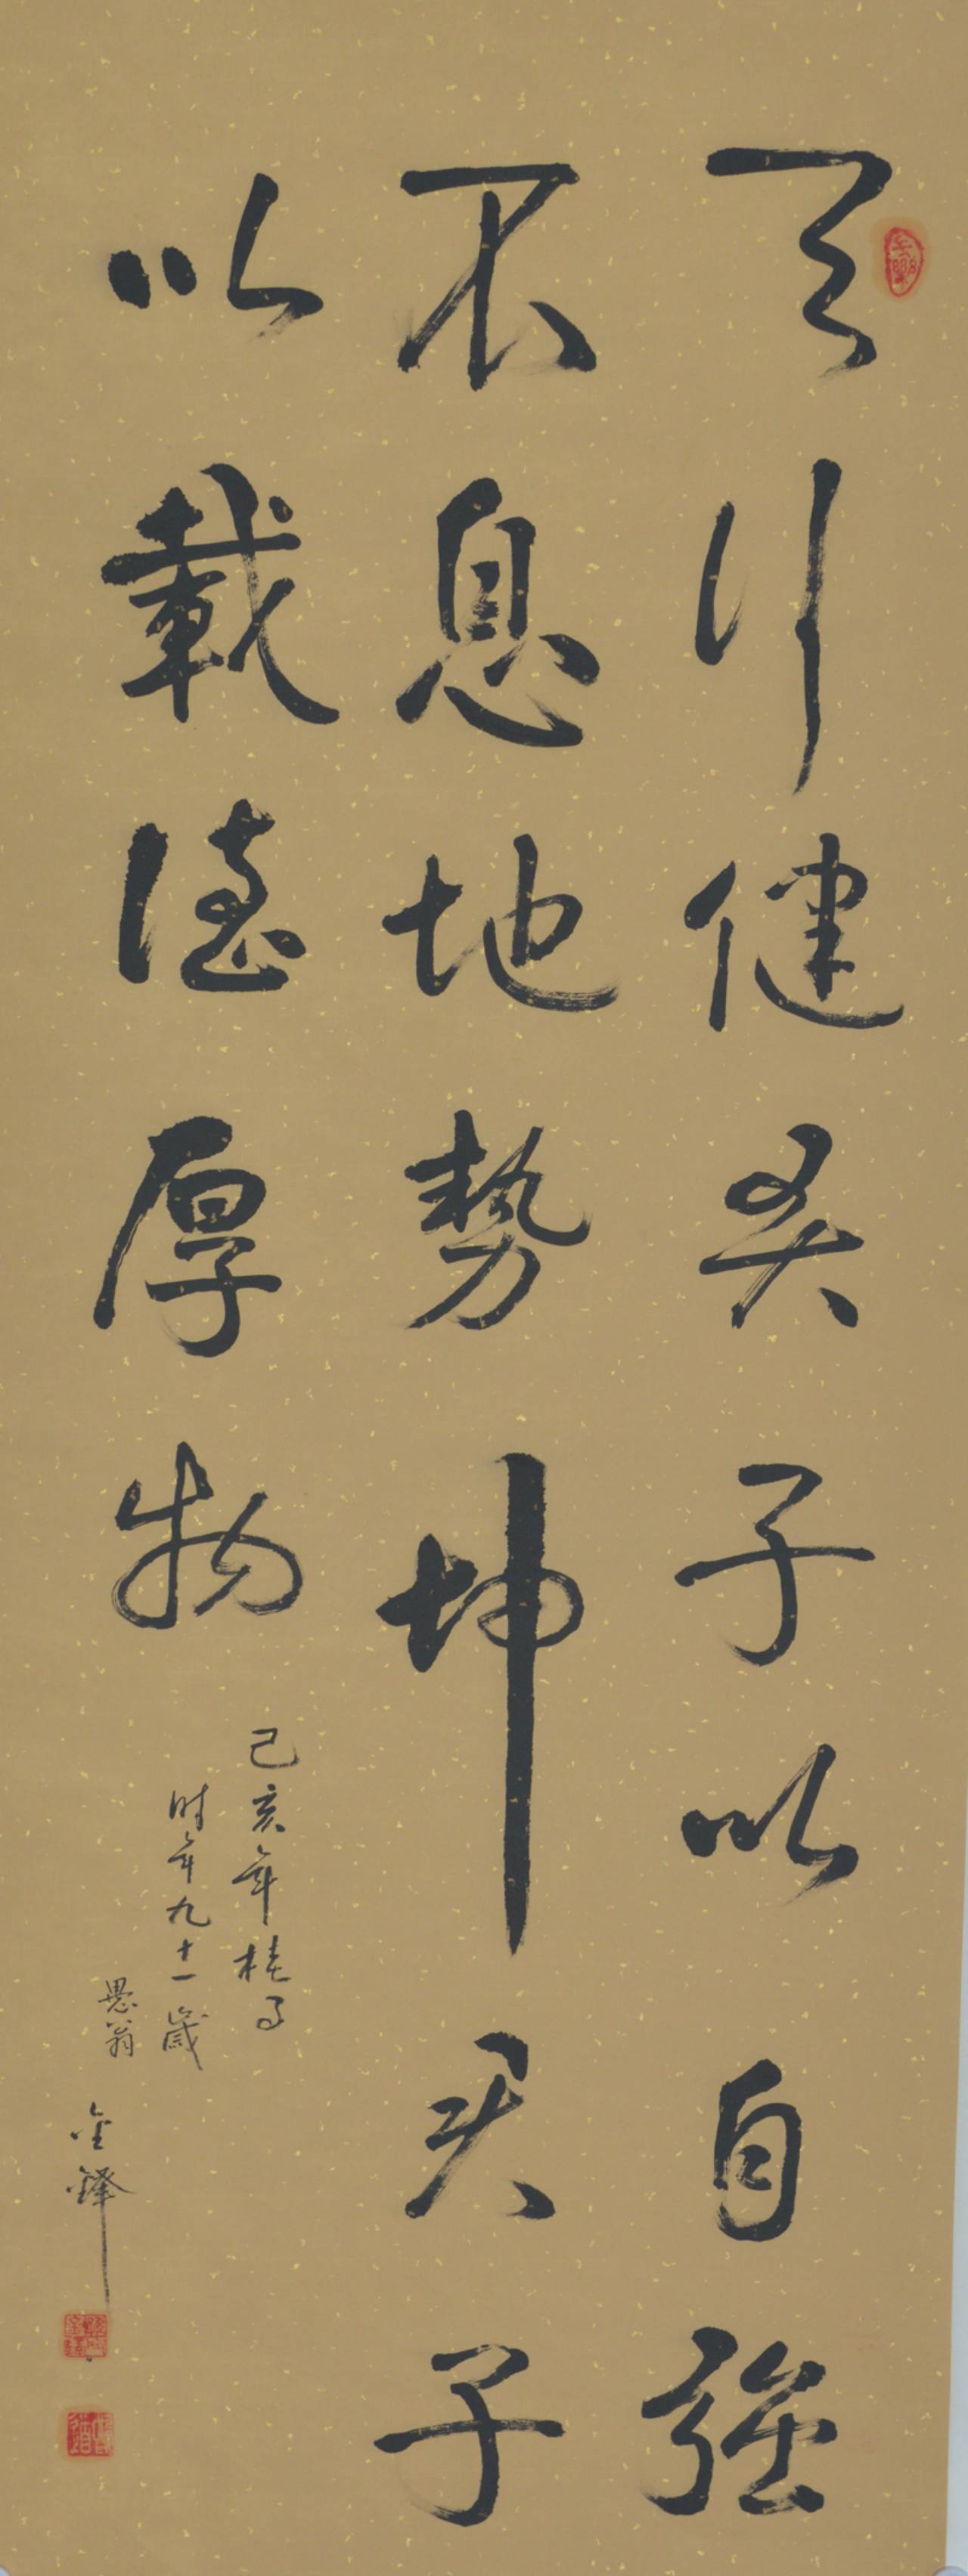 天行健君子以自強
不息地勢坤君子
以載德厚物
己亥年桂月
时年九十一歲
愚翁
金鐸